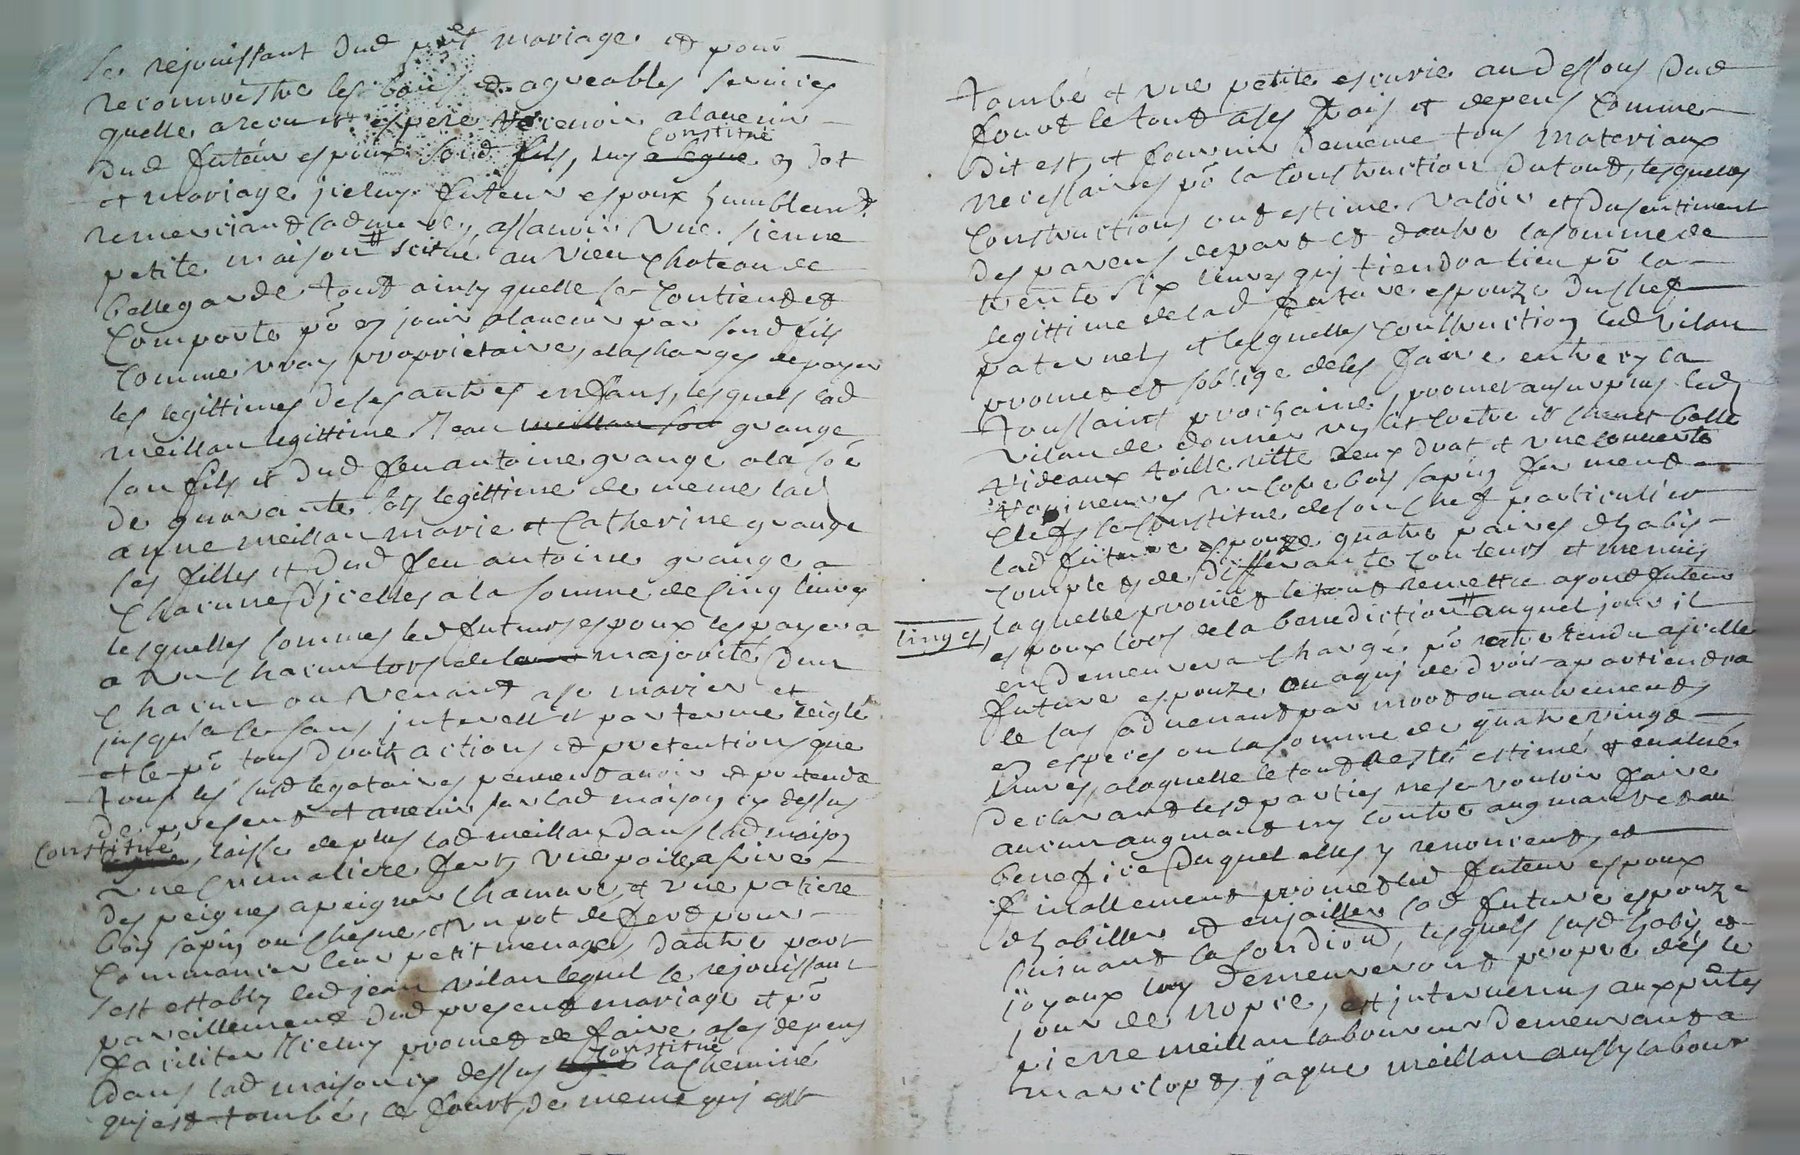 se rejouissant dud pnt mariage et pour
reconnoistre les bons et agreables services
quelle a receu et espere recevoir alavenir
dud futeur espoux sond fils, luy a legue constitué en dot
et mariage iceluy futeur espoux humblemt
remerciant sad mere, assavoir une sienne
petite maison scitué au vieux chateau de
bellegarde tout ainsy quelle se contient et
comporte pō en jouir alavenir par sond fils
comme vray proprietaire, alascharges de payer
les legittimes de ses autres enffans, lesquels lad
meillan legittime Jean meillan son grange
son fils et dud feu antoine grange ala so
de quarante sols legittime de meme lad
anne meillan marie et Catherine grange
ses filles et dud feu antoine grange a
chacune d'icelles ala somme de cinq livres
lesquelles sommes led futeur espoux les payera
a un chacun lors de la majorité d'un
chacun ou venant ase marier et
jusqu'a ce sans interest et par terme reiglé
et le pō tous droits actions et pretentions que
tous les susd legataires peuvent avoir et pretendre
de present et avenir sur lad maison cy dessus
constitué, laisse de plus lad meillan dans lad maison
une crimaliere fert, une poile afrire
des peignes apeigner chamure, et une patiere
bois sapin ou chesne, et un pot de fert pour
commancer leur petit menage, dautre part
sest estably led jean vilan lequel se rejouissant
pareillement dud present mariage et pō
faciliter iceluy promet de faire ases depens
dans lad maison cy dessus constitué la cheminé
qui est tombé, le fourt de meme qui est
tombé et une petite escurie au dessous dud
fourt le tout ases frais et depens comme
dit est, et fournir de meme tous materiaux
necessaires pō la construction du tout, lesquelles
constructions ont estime valoir et du sentiment
des parens de part et dautre la somme de
trente six livres qui tiendra lieu pō la
legittime de lad future espouze du chef
paternel, et lesquelles construction led vilan
promet et soblige de les faire entre cy la
toussaint prochaine, promet ausurplus led
vilan de donner un lit
rideaux toille deux drat et une couverte
un cofre bois sapin fermant a
clef, se constitue de son chef particulier
lad future espouze quatre paires dhabis
complet de differante couleurs et menus
linges, laquelle promet le tout remettre asond futeur
espoux lors de la benediction auquel jour il
en demeurera chargé pō estre rendu a icelle
future espouze ou aqui de droit apartiendra
le cas advenant par mort ou autrement
en especes ou la somme de quatre vingt
livres, alaquelle le tout a esté estimé et evalué
declarant lesd parties ne se vouloir faire
aucun augmant ny contre augmant et au
benefice duquel elles y renoncent, et
finallement promet led futeur espoux
dhabiller et enjoailler lad future espouze
suivant sa condion, lesquels susd habis et
joyaux luy demeureront propre dès le
jour de nopce, et intervenus aux pntes
pierre meillan laboureur demeurant a
marclopt, jaque meillan aussy labour